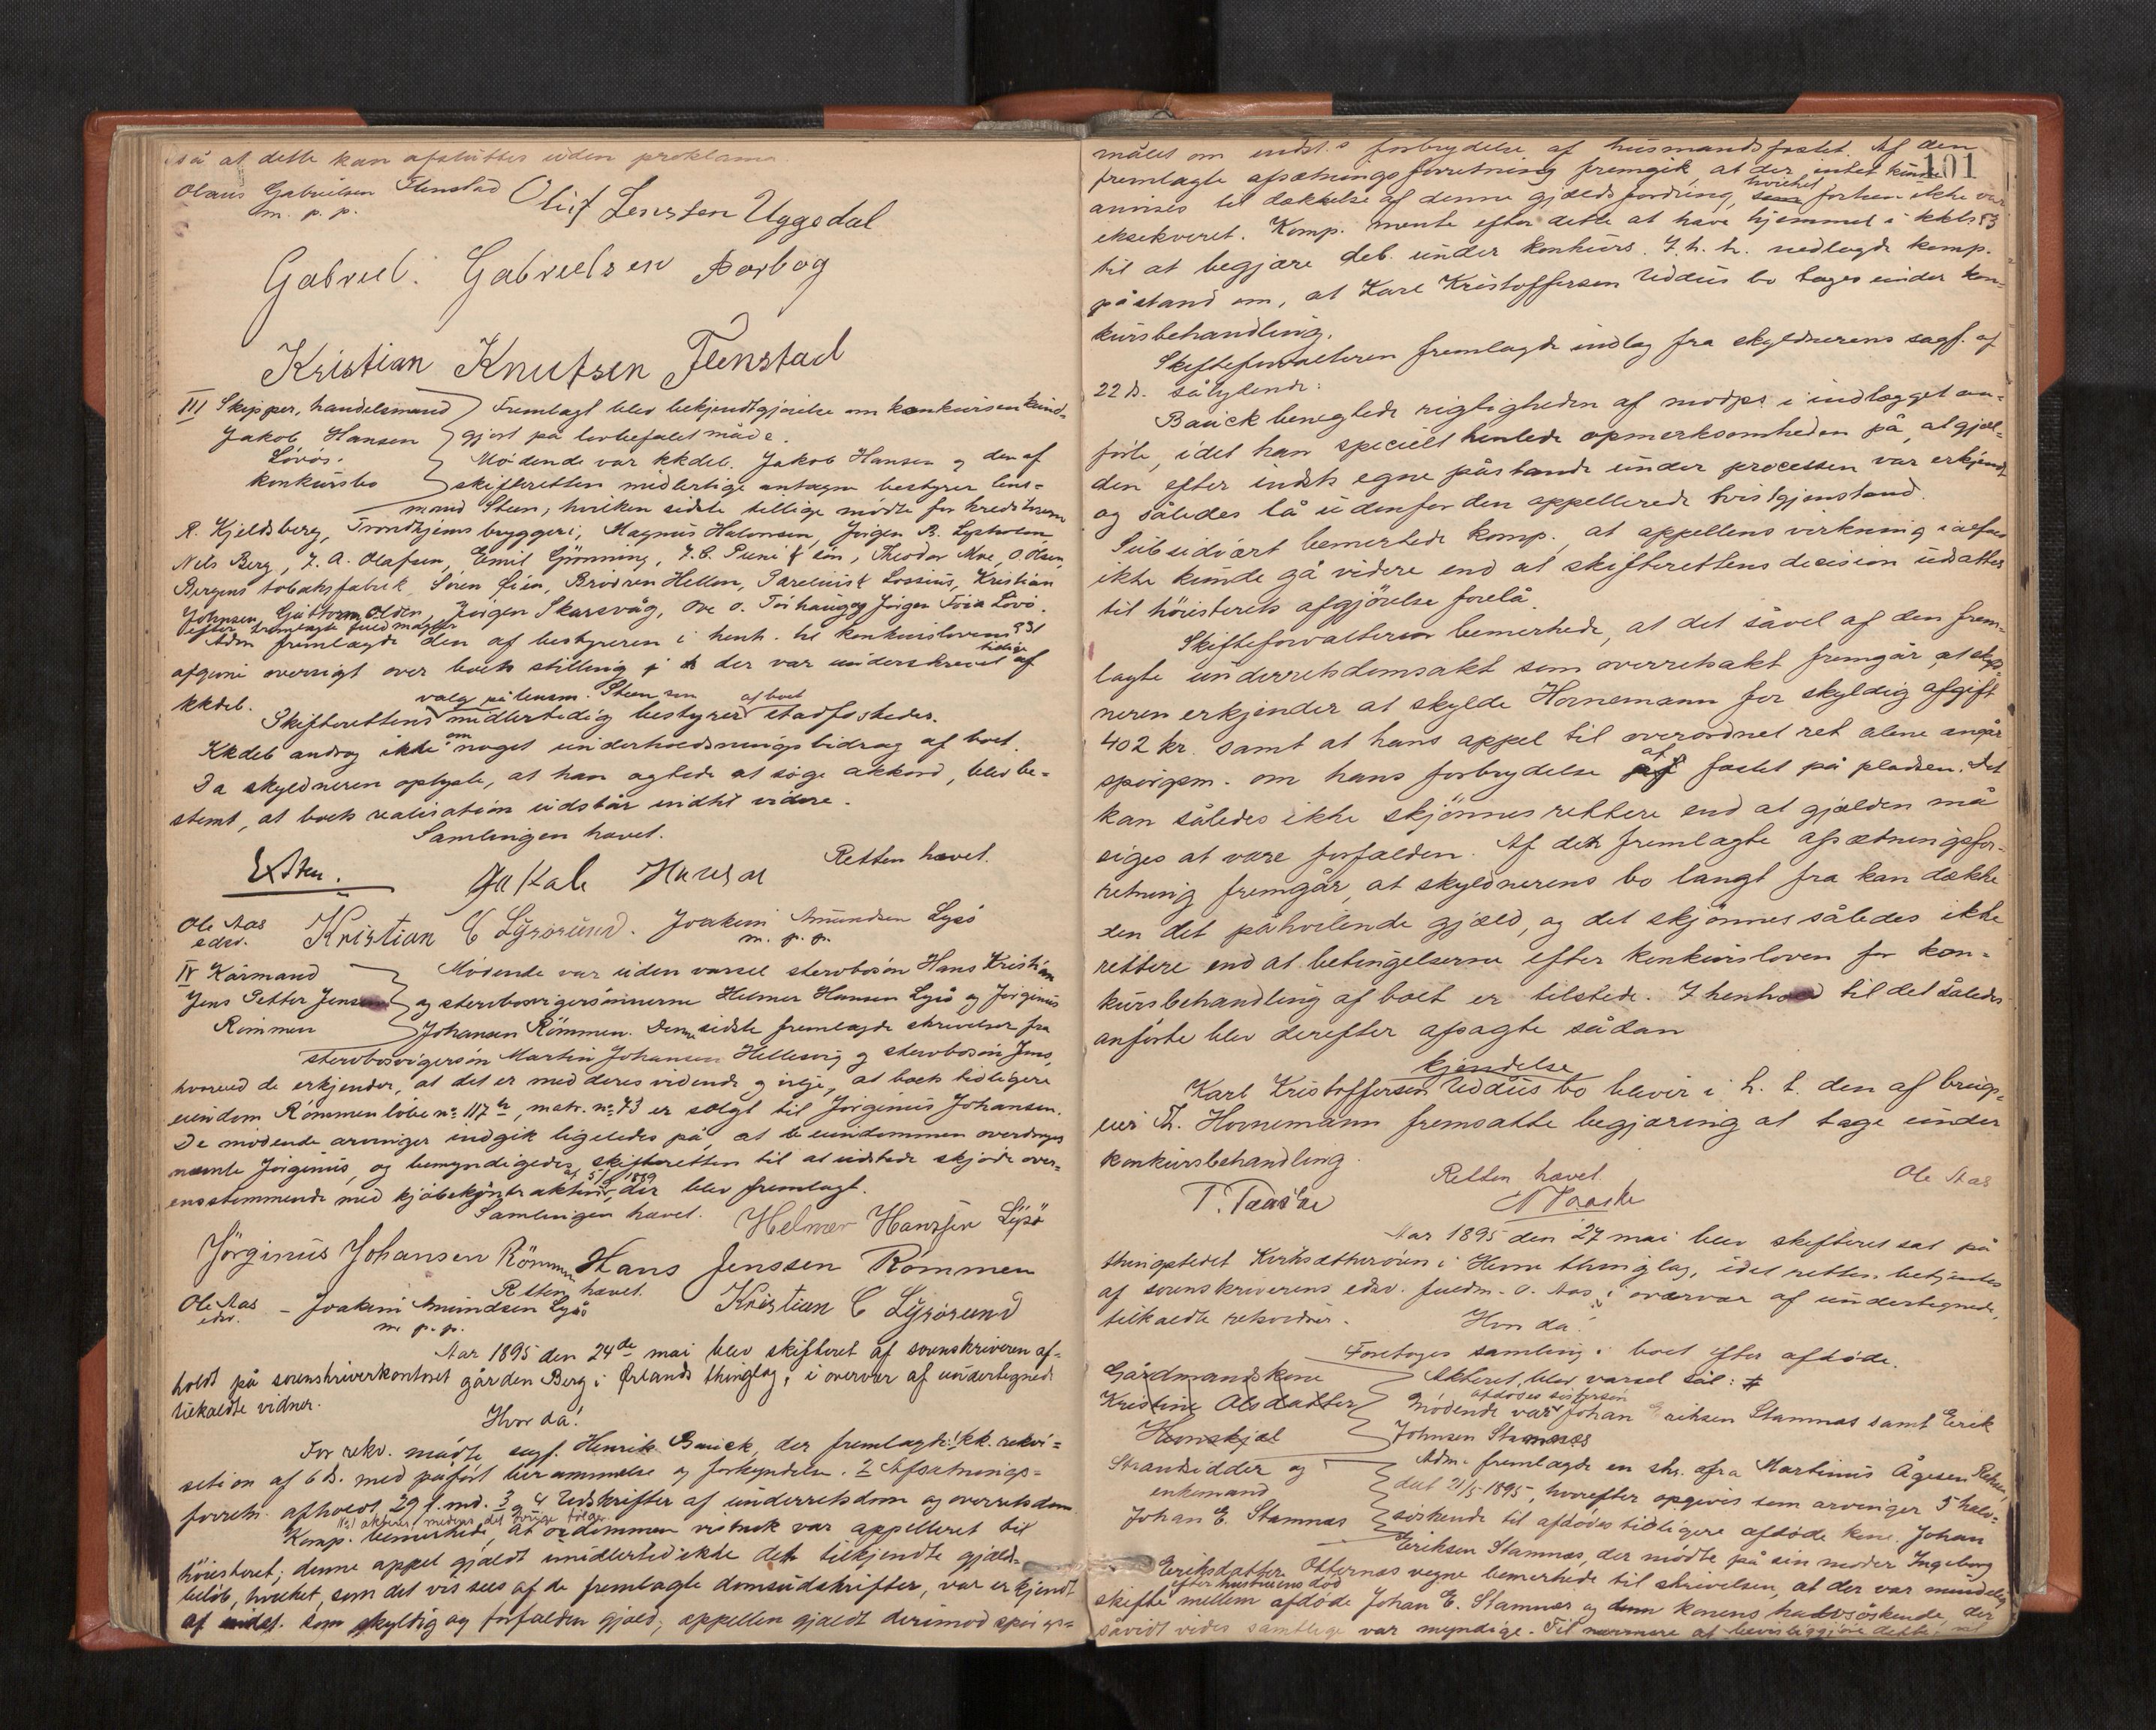 så at dette kan afsluttes uden proklama.
Olaus Gabrielsen Flenstad
m. p. p.
Oluf Uggedal
Gabriel. Gabrielsen
Kristian Knutsen Flenstad
III Skipper, handelsmand
Jakob Hansen
Lövös.
konkursbo
Fremlagt blev bekjendtgjörelse om konkursen kund-
gjort på lovbefalet måde.
Mödende var kkdeb. Jakob Hansen og den af
skifteretten midlertidige antagne bestyrer lens-
mand Steen, hvilken sidste tillige mödte for kreditorerne
R. Kjeldsberg, Trondhjems bryggeri, Magnus Halvorsen, Jörgen B. Lysholm
Nils Berg, J. A. Olafsen, Emil Grönning, & sön, Theodor Moe, O. Olsen,
Bergens tobaksfabrik, Sören Lien, Brödren Hellem, & Lossius, Kristian
Johnsen, Guttorm Olden, Jörgen Skarsvåg, Ove O. og Jörgen Lövö.
efter fremlagte fuldmagter
Adm. fremlagde den af bestyreren i henh. til konkurslovens § 31
afgivne oversigt over boets stilling, der var underskrevet af
kkdeb.
Skifterettens valg på lensm. Steen som midlertidig bestyrer af boet stadfæstedes.
Kkdeb androg ikke om noget underholdningsbidrag af boet.
Da skyldneren oplyste, at han agtede at söge akkord, blev be-
stemt, at boets realisation udstår indtil videre.
Samlingen hævet.
Retten hævet.
Jakob Hansen
Ole Aas
edsv.
Kristian C Lysösund. Joakim Amundsen Lysö
m. p. p.
IV Kårmand
Jens Petter Jensen
Römmen
Mödende var uden varsel stervbosön Hans Kristian
og stervbosvigersönnerne Helmer Hansen Lysö og Jörginus
Johansen Römmen. Denne sidste fremlagde skrivelser fra
stervbosvigersön Martin Johansen Hellesvig og stervbosön Jens,
hvorved de erkjender, at det er med deres vidende og vilje, at boets tidligere
eiendom Römmen löbe no 117 b, matr. no 43 er solgt til Jörginus Johansen.
De mödende arvinger indgik ligeledes på, at eiendommen overdrages
nævnte Jörginus, og bemyndigedes skifteretten til at udstede skjöde over-
ensstemmende med kjöbekontrakten, der blev fremlagt.
Samlingen hævet.
Helmer Hansen Lysö
Jörginus Johansen Römmen Hans Jenssen Rommen
Retten hævet.
Ole Aas
edsv.
Joakim Amundsen Lysö
m. p. p.
Kristian C Lysösund
Aar 1895 den 24de mai blev skifteret af sorenskriveren af-
holdt på sorenskriverkontoret gården Berg i Ørlands thinglag, i overvær af undertegnede
tilkaldte vidner.
Hvor da!
For rekv. mödte sagf. Henrik Bauck, der fremlagde: 1 kk. rekvi-
sition af 6 ds. med påfört berammelse og forkyndelse. 2 Afsætnings-
forretn. afholdt 29 f. md. 3 og 4 Udskrifter af underretsdom og overretsdom
Komp. bemerkede, at dommen vistnok var appelleret til
höiesteret; denne appel gjaldt imidlertid ikke det tilkjendte gjælds-
belöb, hvilket, som det vis sees af de fremlagte domsudskrifter, var erkjendt
af indst. som skyldig og forfalden gjæld; appellen gjaldt derimod spörgs-
101
målet om indst.s forbrydelse af husmandsfæstet. Af den
fremlagte afsætningsforretning fremgik, at der intet kunde
anvises til dækkelse af denne gjældsfordring, hvilket forhen ikke var
eksekveret. Komp. mente efter dette at have hjemmel i kkl. § 3
til at begjære deb. under konkurs. I h. h. nedlagde komp.
påstand om, at Karl Kristoffersen Uddus bo tages under kon-
kursbehandling.
Skifteforvalteren fremlagde indlæg fra skyldnerens sagf. af
22 ds. sålydende:
Bauck benegtede rigtigheden af modps. i indlægget an-
förte, idet han specielt henledte opmerksomheden på, at gjæl-
den efter indsts egne påstande under processen var erkjendt
og således lå udenfor den appellerede tvistgjenstand.
Subsidiært bemerkede komp., at appellens virkning ialfald
ikke kunde gå videre end at skifterettens decision udsattes
til höiesterets afgjörelse forelå.
Skifteforvalteren bemerkede, at det såvel af den frem-
lagte underretsdomsakt som overretsakt fremgår, at skyld-
neren erkjender at skylde Hornemann for skyldig afgift
402 kr. samt at hans appel til overordnet ret alene angår
spörgsm. om hans forbrydelse af fæstet på pladsen. Det
kan således ikke skjönnes rettere end at gjælden må
siges at være forfalden. Af den fremlagte afsætningsfor-
retning fremgår, at skyldnerens bo langt fra kan dække
den det påhvilende gjæld, og det skjönnes således ikke
rettere end at betingelserne efter konkursloven for kon-
kursbehandling af boet er tilstede. I henhold til det således
anförte blev derefter afsagte sådan
kjendelse
Karl Kristoffersen Uddus bo blevir i h. t. den af brugs-
eier Th. Hornemann fremsatte begjæring at tage under
konkursbehandling.
Retten hævet.
Ole Aas
Aar 1895 den 27 mai blev skifteret sat på
thingstedet Kirksæterören i Hevne thinglag, idet retten betjentes
af sorenskriverens edsv. fuldm. O. Aas, i overvær af undertegnede,
tilkaldte retsvidner.
Hvor da!
Foretoges samling i boet efter afdöde.
Gårdmandskone
Kristine Olsdatter
Hevnskjæl
Akteret blev varsel sål: #
Mödende var afdödes söstersön Johan Eriksen Stamnæs samt Erik
Johnsen Stamnæs
Strandsidder og
enkemand
Johan E. Stamnæs
Adm. fremlagde en skr. fra Martinus Ågesen
dat 21/5 1895, hvorefter opgives som arvinger 5 halv-
söskende til afdödes tidligere afdöde kone. Johan
Eriksen Stamnæs, der mödte på sin moder Ingeborg
Eriksdatter Otternæs vegne bemerkede til skrivelsen, at der var mindelig
skifte efter hustruens död mellem afdöde Johan E. Stamnæs og konens halvsöskende, der
såvidt vides samtlige var myndige. Til nærmere at bevisliggjöre dette vil